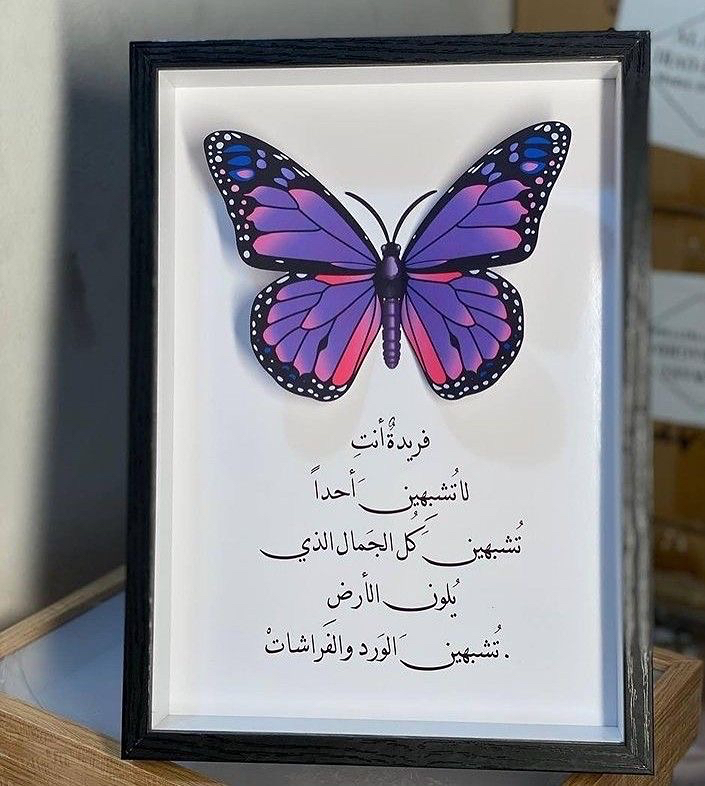 فريدةٌ أنتِ
لا تُشبهينَ أحداً
تُشبهينَ كُل الجَمال الذي
يُلون الأرض
.تُشبهينَ الوَرد والفَراشاتْ